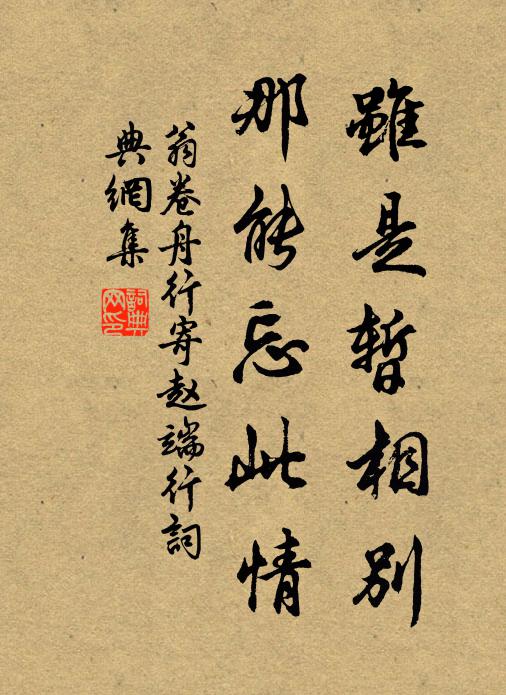 雖是暫相別
那能忘此情
翁卷舟行寄赵端行詞
典網集
詞典网印